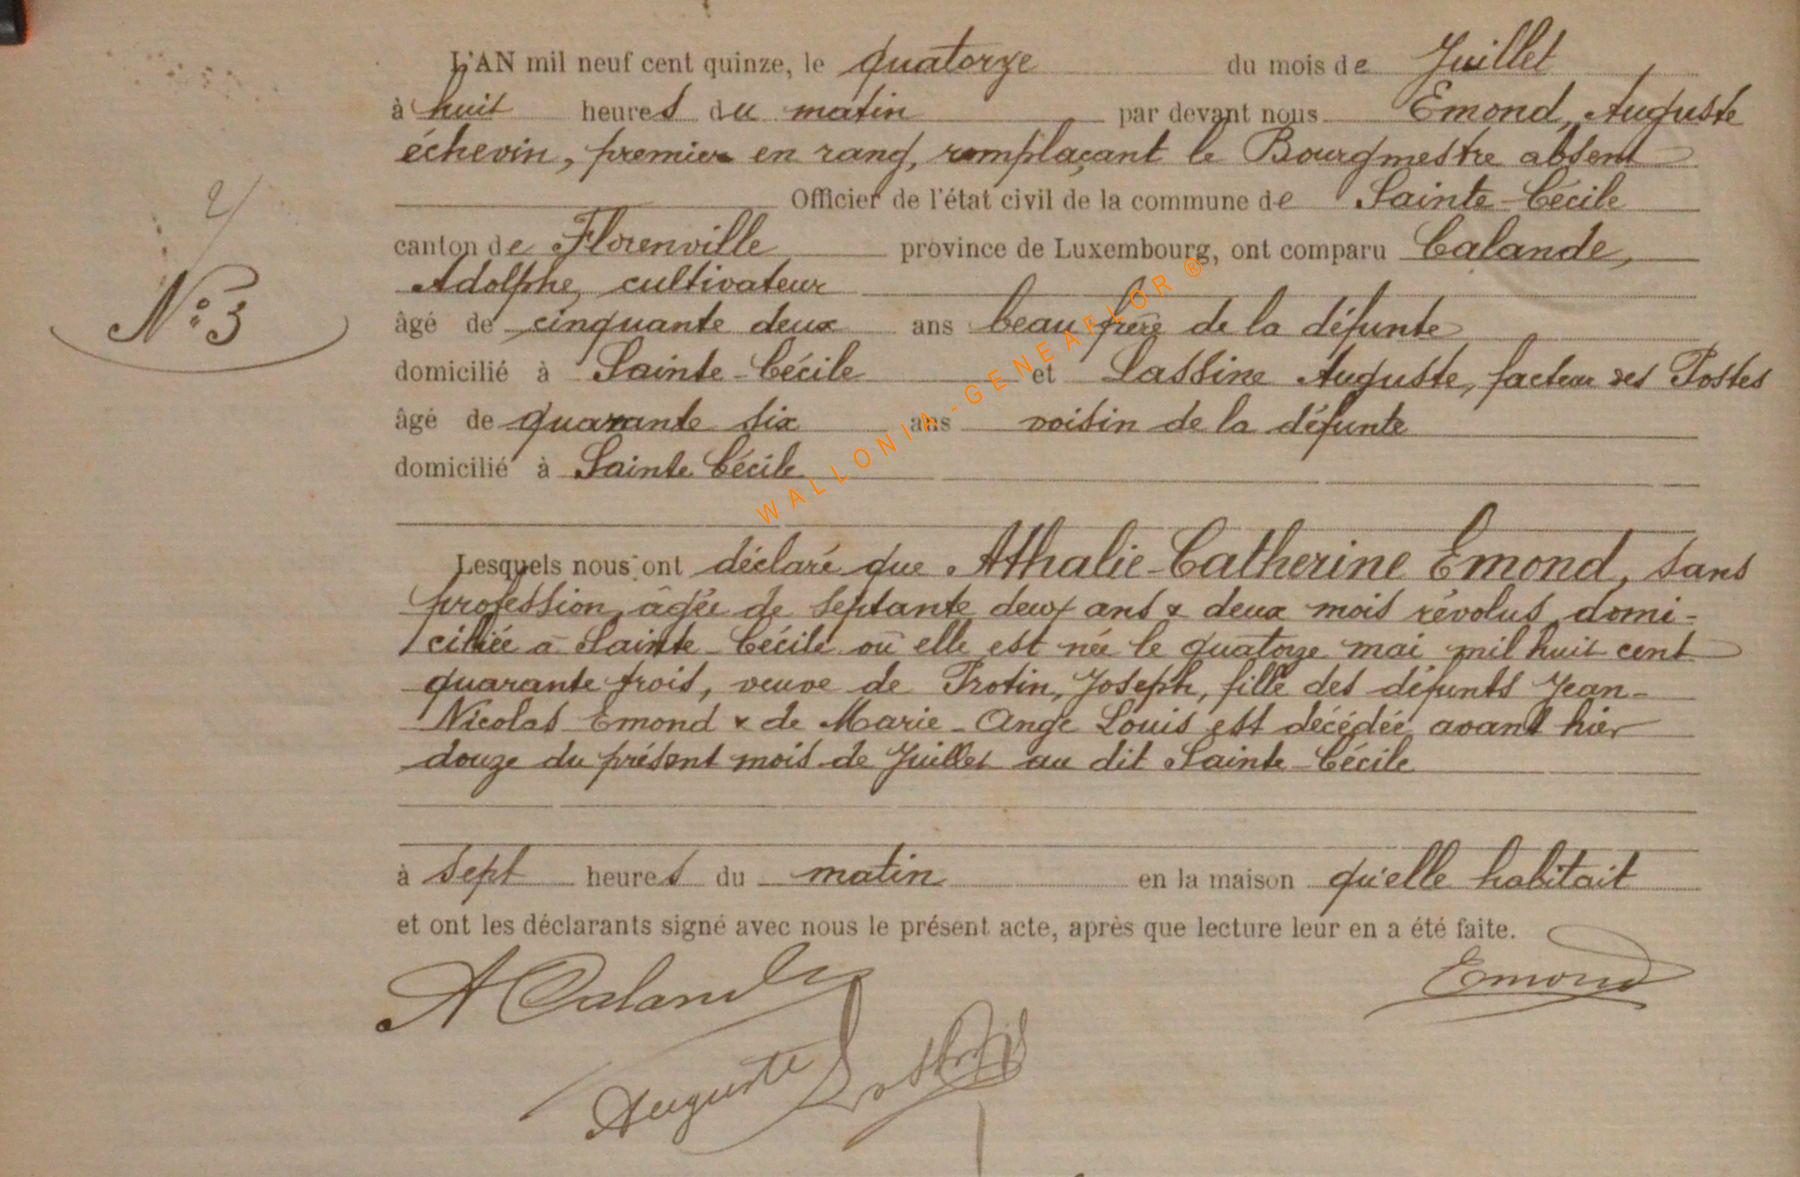 L'AN mil neuf cent quinze, le quatorze du mois de Juillet
à huit heures du matin par devant nous Emond, Auguste
échevin, premier en rang, remplaçant le Bourgmestre absent
Officier de l'état civil de la commune de Sainte-Cécile
canton de Florenville province de Luxembourg, ont comparu Calande,
Adolphe, cultivateur
N° 3
âgé de cinquante deux ans beau frère de la défunte
domicilié à Sainte-Cécile et Lassine Auguste, facteur des Postes
âgé de quarante six ans voisin de la défunte
domicilié à Sainte Cécile
WALLONIA-GENEAFLOR ®
Lesquels nous ont déclaré que Athalie-Catherine Emond, sans
profession, âgée de septante deux ans & deux mois révolus, domi-
ciliée à Sainte-Cécile où elle est née le quatorze mai mil huit cent
quarante trois, veuve de Protin, Joseph, fille des défunts Jean-
Nicolas Emond & de Marie-Ange Louis est décédée avant hier
douze du présent mois de Juillet au dit Sainte-Cécile
à sept heures du matin en la maison qu'elle habitait
et ont les déclarants signé avec nous le présent acte, après que lecture leur en a été faite.
A Calande Emond
Auguste